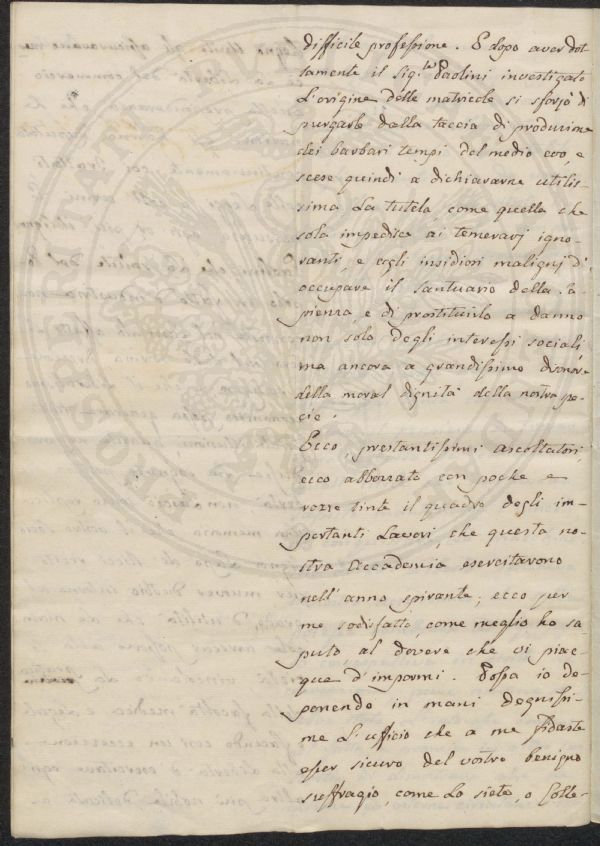 difficile professione. E dopo aver dot
tamente il Sig.re Paolini investigato
L'origine delle matricole si sforzò di
purgarle dalla taccia di produzione
dei barbari tempi del medio evo, e
scese quindi a dichiararne utilis
sima La tutela, come quella che
sola impedisce ai temerarj igno-
ranti, e agli insidiosi maligni d'
occupare il santuario della sa
pienza, e di prostituirlo a danno
non solo degli interessi sociali,
ma ancora a grandissimo disonore
della moral dignità della nostra spe
cie.
Ecco, prestantissimi ascoltatori,
ecco abbozzato con poche e
rozze tinte il quadro degli im-
portanti Lavori, che questa no-
stra Accademia esercitarono
nell'anno spirante; ecco per
me sodisfatto, come meglio ho sa
puto al dovere che vi piac
que d'impormi. Possa io de-
ponendo in mani degnissi-
me L'ufficio che a me fidaste
esser sicuro del vostro benigno
suffragio, come Lo siete, o Colle-